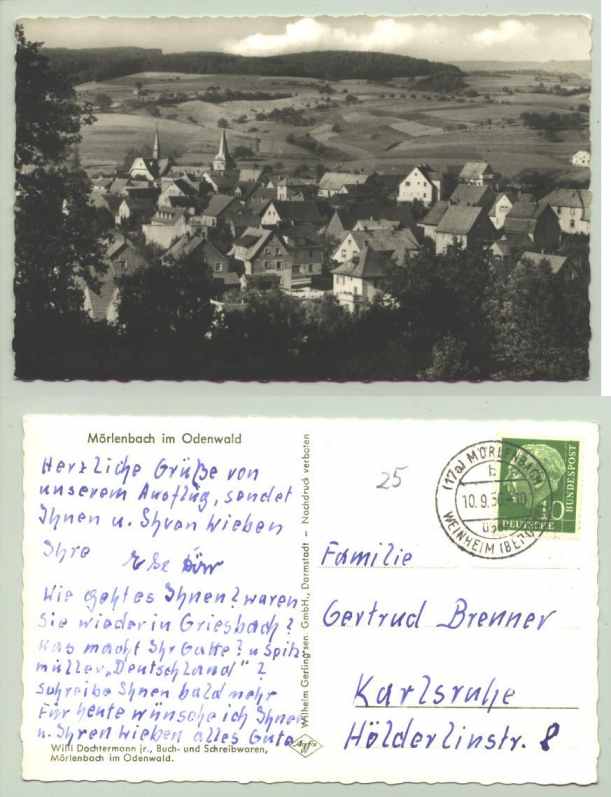 Mörlenbach im Odenwald
Herzliche Grüße von
unserem Ausflug, sendet
Ihnen u. Ihren lieben
Ihre
Wie geht es Ihnen? waren
Sie wieder in Griesbach?
Was macht Ihr Gatte? u. Spitz-
müller „Deutschland"?
schreibe Ihnen bald mehr
Für heute wünsche ich Ihnen
u. Ihren lieben alles Gute
Willi Dachtermann jr., Buch- und Schreibwaren,
Mörlenbach im Odenwald.
Wilhelm Gerling sen. GmbH., Darmstadt – Nachdruck verboten
Agfa
25
(17a) MÖRLENBACH
10.9.5
WEINHEIM (BERG
DEUTSCHE
BUNDESPOST
Familie
Gertrud Brenner
Karlsruhe
Hölderlinstr. 8